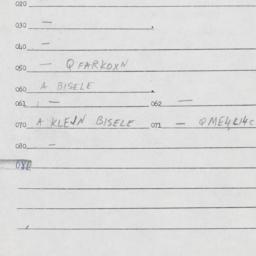 020
030 —
040 —
050 — QFARKOXN
060 A BISELE
061 — 062 —
070 A KLEJN BISELE 071 — QME4L14C
080 —